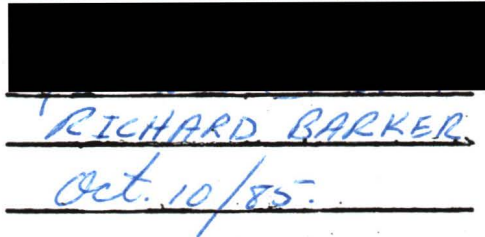 RICHARD BARKER
Oct. 10/85.